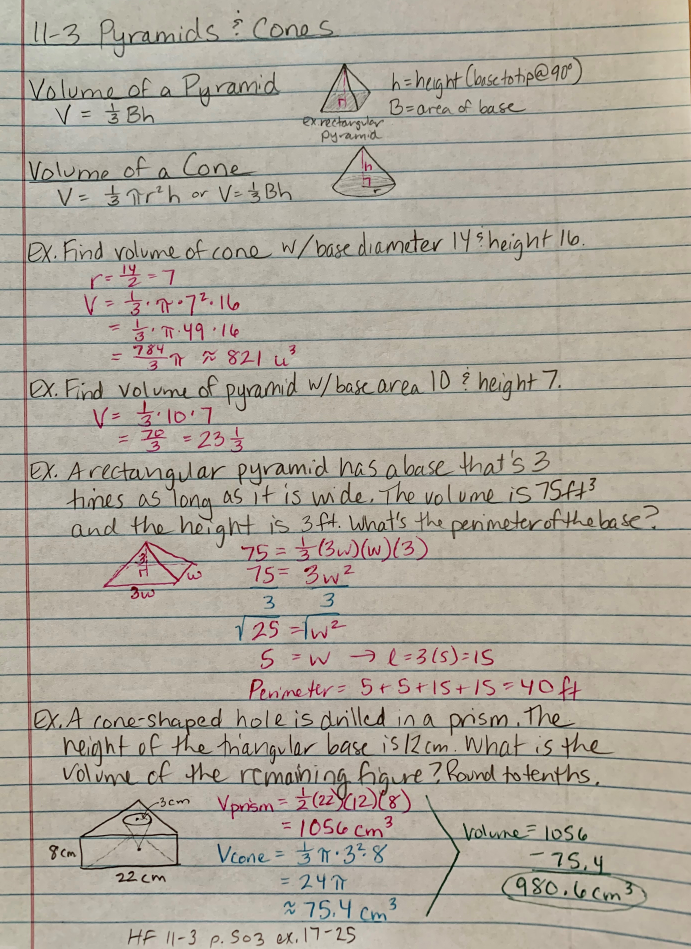 11-3 Pyramids & Cones
Volume of a Pyramid
V = 1/3 Bh
h = height (base to tip @ 90°)
B = area of base
ex rectangular
pyramid
Volume of a Cone
V = 1/3 πr²h or V = 1/3 Bh
h
r
Ex. Find volume of cone w/ base diameter 14 & height 16.
r = 14/2 = 7
V = 1/3 · π · 7² · 16
= 1/3 · π · 49 · 16
= 784/3 π ≈ 821 u³
Ex. Find volume of pyramid w/ base area 10 & height 7.
V = 1/3 · 10 · 7
= 70/3 = 23 1/3
Ex. A rectangular pyramid has a base that's 3
times as long as it is wide. The volume is 75 ft³
and the height is 3 ft. What's the perimeter of the base?
3
w
3w
75 = 1/3 (3w)(w)(3)
75 = 3w²
3 3
√25 = √w²
5 = w → l = 3(5) = 15
Perimeter = 5 + 5 + 15 + 15 = 40 ft
Ex. A cone-shaped hole is drilled in a prism. The
height of the triangular base is 12 cm. What is the
volume of the remaining figure? Round to tenths.
3cm
8cm
22 cm
Vprism = 1/2 (22)(12)(8)
= 1056 cm³
Vcone = 1/3 π · 3² · 8
= 24π
≈ 75.4 cm³
Volume = 1056
- 75.4
980.6 cm³
HF 11-3 p. 503 ex. 17-25